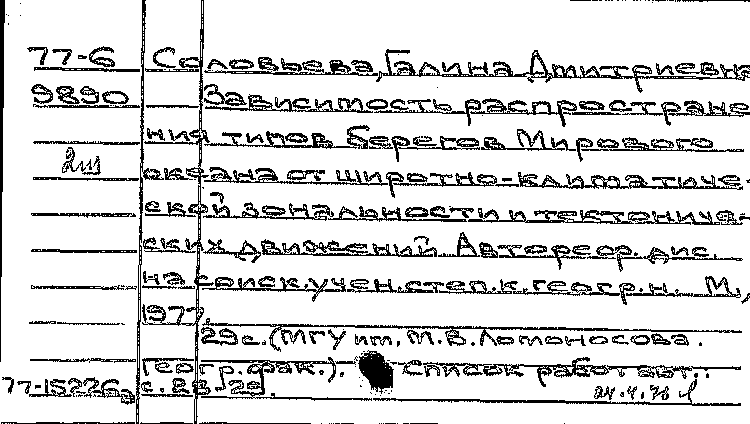 77-6 Соловьева, Галина Дмитриевна
9890 Зависимость распростране-
ния типов берегов Мирового
2ш океана от широтно-климатиче-
ской зональности и тектониче-
ских движений. Автореф. дис.
на соиск. учен. степ. к. геогр. н. М.,
1977.
29 с. (МГУ им. М.В. Ломоносова.
Геогр. фак.). Список работ авт.:
77-15226а с. 28-29.